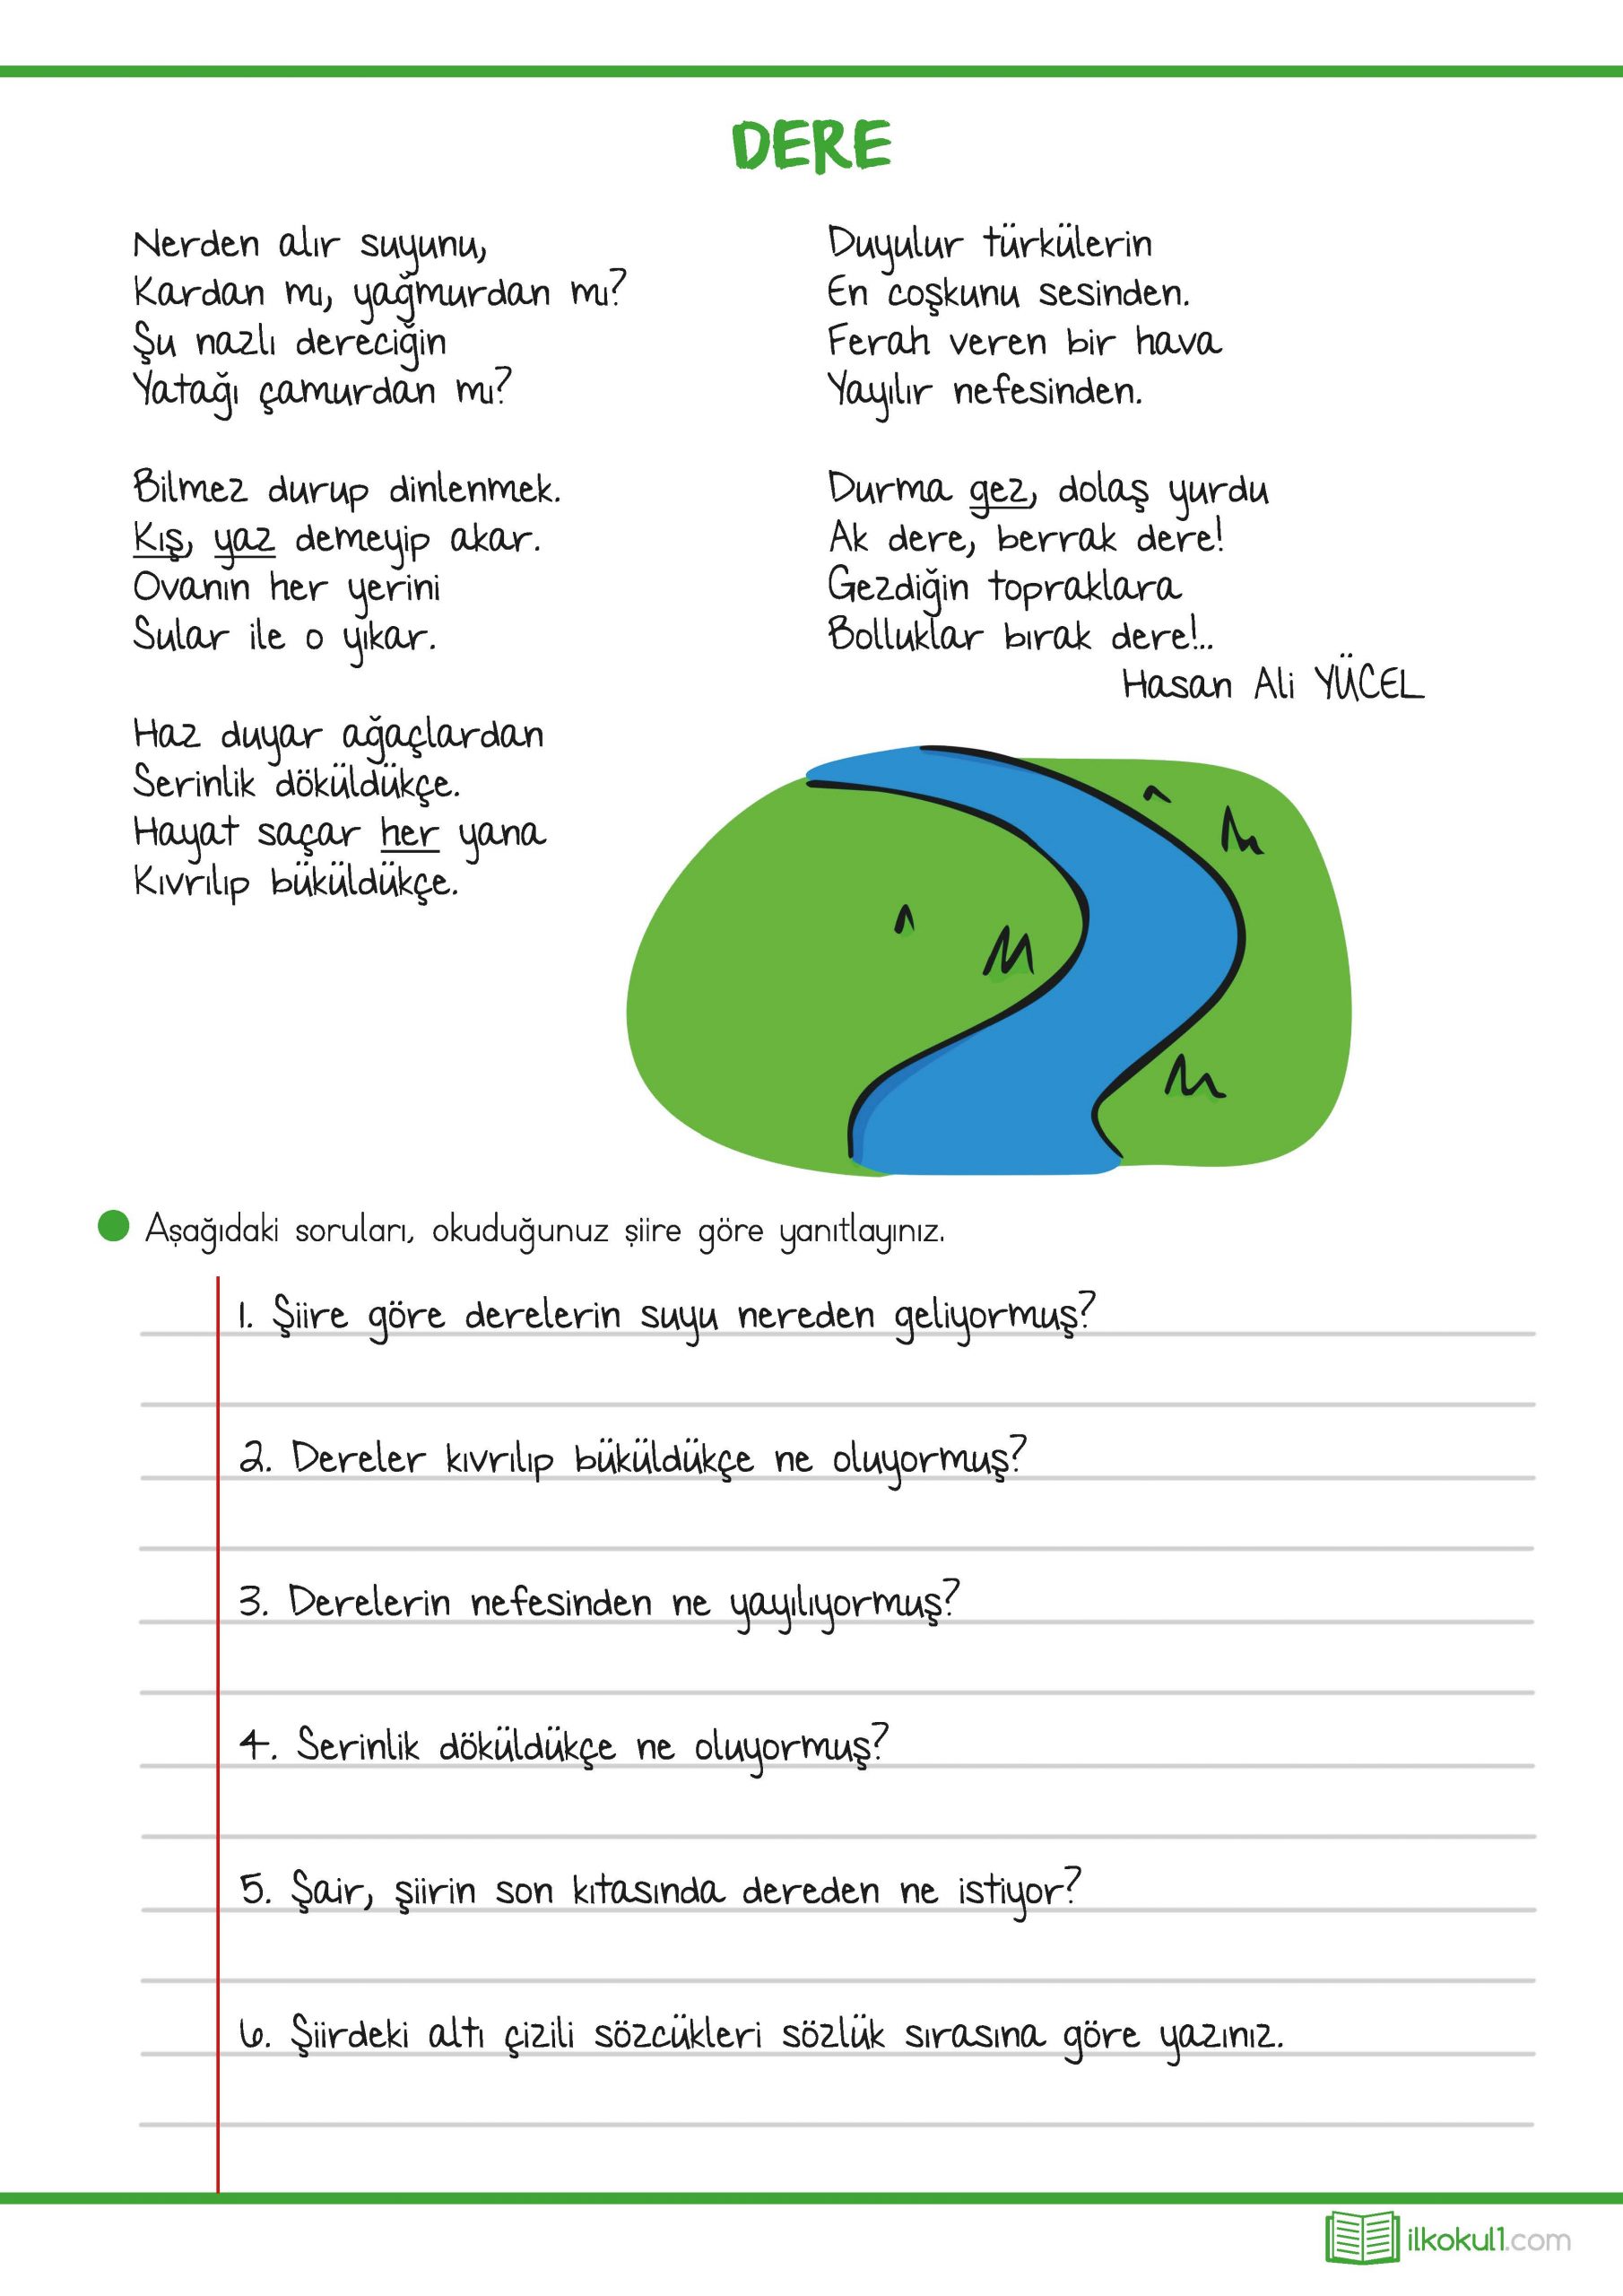 DERE
Nerden alır suyunu,
Kardan mı, yağmurdan mı?
Şu nazlı dereciğin
Yatağı çamurdan mı?
Bilmez durup dinlenmek.
Kış, yaz demeyip akar.
Ovanın her yerini
Sular ile o yıkar.
Haz duyar ağaçlardan
Serinlik döküldükçe.
Hayat saçar her yana
Kıvrılıp büküldükçe.
Duyulur türkülerin
En coşkunu sesinden.
Ferah veren bir hava
Yayılır nefesinden.
Durma gez, dolaş yurdu
Ak dere, berrak dere!
Gezdiğin topraklara
Bolluklar bırak dere!..
Hasan Ali YÜCEL
Aşağıdaki soruları, okuduğunuz şiire göre yanıtlayınız.
1. Şiire göre derelerin suyu nereden geliyormuş?
2. Dereler kıvrılıp büküldükçe ne oluyormuş?
3. Derelerin nefesinden ne yayılıyormuş?
4. Serinlik döküldükçe ne oluyormuş?
5. Şair, şiirin son kıtasında dereden ne istiyor?
6. Şiirdeki altı çizili sözcükleri sözlük sırasına göre yazınız.
ilkokul1.com